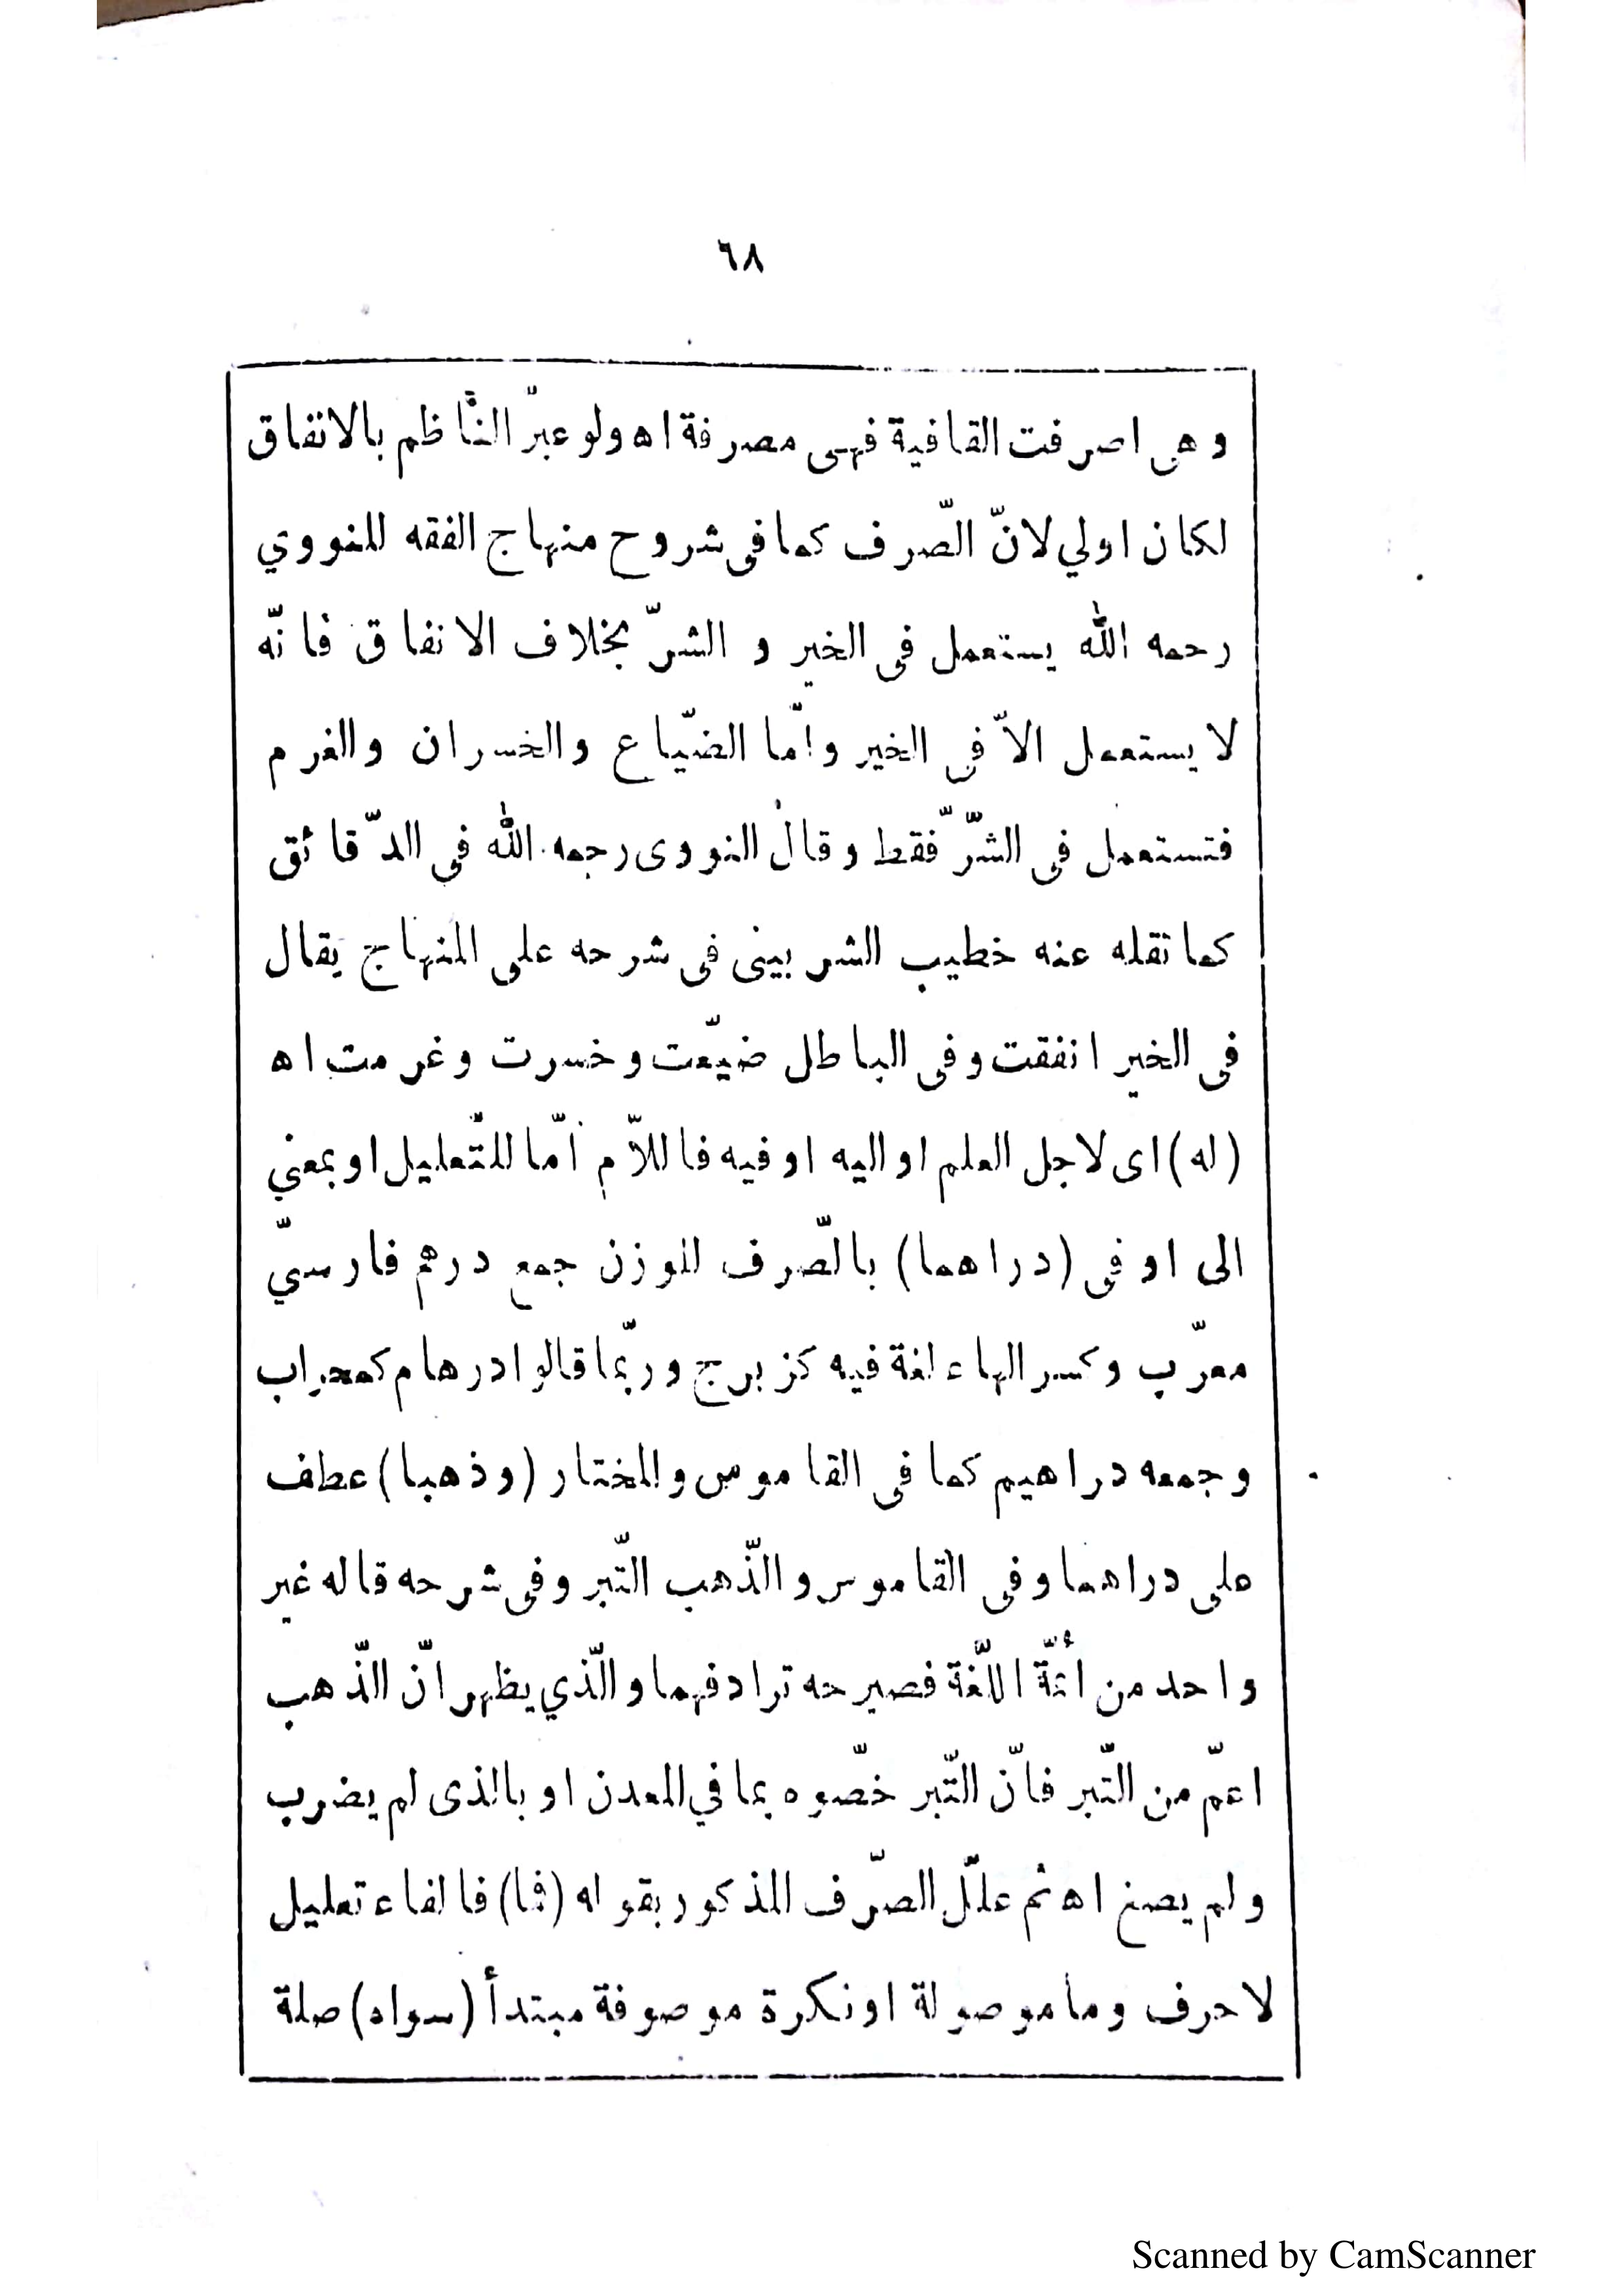 ٦٨
وهى اصرفت القافية فهى مصرفة اه ولو عبّر النّاظم بالانفاق
لكان اولي لانّ الصّرف كما فى شروح منهاج الفقه للنووي
رحمه الله يستعمل فى الخير و الشرّ بخلاف الانفاق فانّه
لا يستعمل الاّ فى الخير وامّا الضيّاع والخسران والغرم
فتستعمل فى الشرّ فقط وقال النووى رحمه الله فى الدّقائق
كما نقله عنه خطيب الشربينى فى شرحه على المنهاج يقال
فى الخير انفقت وفى الباطل ضيّعت وخسرت وغرمت اه
(له) اى لاجل العلم او اليه او فيه فاللاّم امّا للتّعليل او بمعني
الى او فى (دراهما) بالصّرف للوزن جمع درهم فارسيّ
معرّب وكسر الهاء لغة فيه كزبرج وربّما قالوا درهام كمحراب
وجمعه دراهيم كما فى القاموس والمختار (وذهبا) عطف
على دراهما وفى القاموس والذّهب التّبر وفى شرحه قاله غير
واحد من أئمّة اللّغة فصيرحه ترادفهما والّذي يظهر انّ الذّهب
اعمّ من التّبر فانّ التّبر خصّوه بما في المعدن او بالذى لم يضرب
ولم يصنع اه ثم علّل الصّرف المذكور بقوله (فما) فالفاء تعليل
لاحرف وما موصولة او نكرة موصوفة مبتدأ (سواه) صلة
Scanned by CamScanner